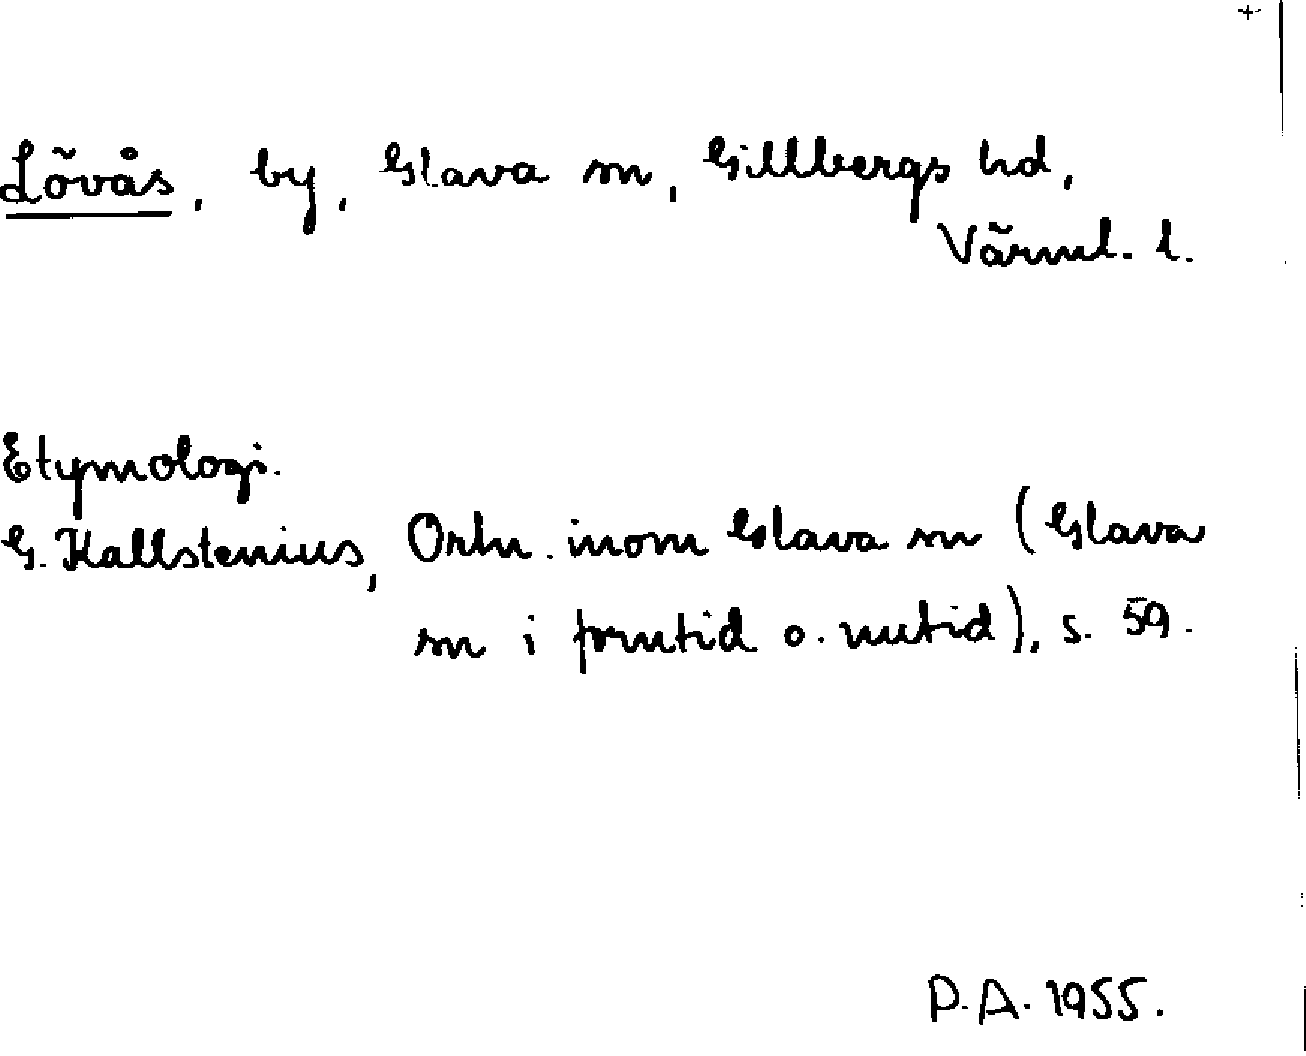 Lövås, by, Glava sn, Gillbergs hd,
Värml. l.
Etymologi.
G. Kallstenius, Ortn. inom Glava sn (Glava
sn i forntid o. nutid), s. 59.
P.A. 1955.